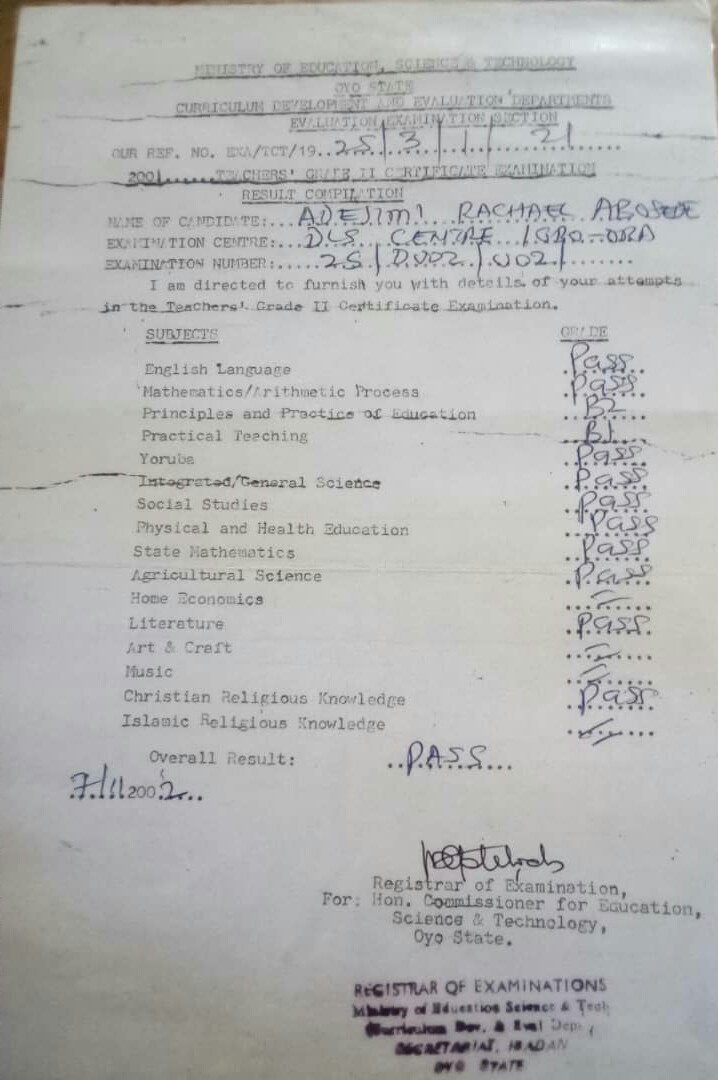 MINISTRY OF EDUCATION, SCIENCE & TECHNOLOGY
OYO STATE
CURRICULUM DEVELOPMENT AND EVALUATION DEPARTMENTS
EVALUATION EXAMINATION SECTION
OUR REF. NO. EXA/TCT/19..25/3/1/21......
2001......TEACHERS' GRADE II CERTIFICATE EXAMINATION
RESULT COMPILATION
NAME OF CANDIDATE:...ADEJIMI RACHAEL ABOSEDE
EXAMINATION CENTRE:...DLS CENTRE IGBO-ORA
EXAMINATION NUMBER:.....25/DV02/002/.......
I am directed to furnish you with details of your attempts
in the Teachers' Grade II Certificate Examination.
SUBJECTS GRADE
English Language Pass
Mathematics/Arithmetic Process Pass
Principles and Practice of Education B2
Practical Teaching B1
Yoruba Pass
Integrated/General Science Pass
Social Studies Pass
Physical and Health Education Pass
State Mathematics Pass
Agricultural Science Pass
Home Economics
Literature Pass
Art & Craft
Music
Christian Religious Knowledge Pass
Islamic Religious Knowledge
Overall Result: ..PASS...
7/11/2002...
Registrar of Examination,
For: Hon. Commissioner for Education,
Science & Technology,
Oyo State.
REGISTRAR OF EXAMINATIONS
Ministry of Education Science & Tech
(Curriculum Dev. & Eval Dep.
SECRETARIAT, IBADAN
OYO STATE